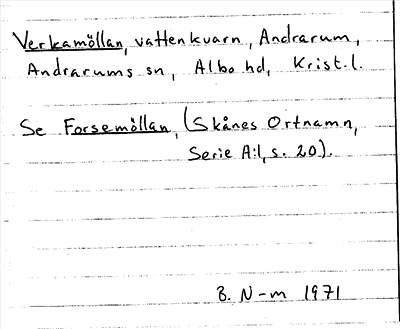 Verkamöllan, vattenkvarn, Andrarum,
Andrarums sn, Albo hd, Krist. l.
Se Forsemöllan, (Skånes Ortnamn,
Serie A:1, s. 20).
B. N-m 1971